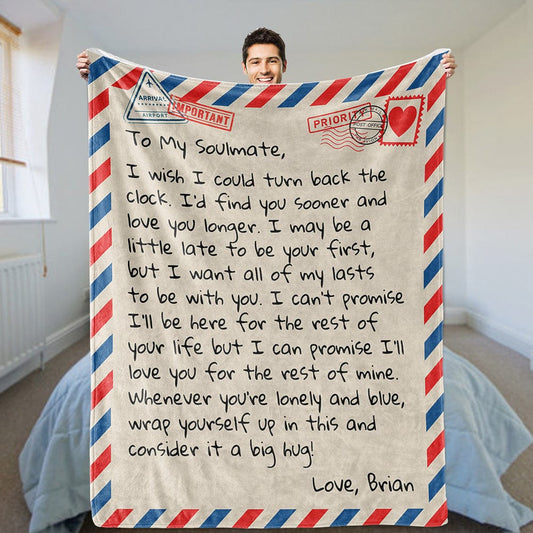 ARRIVAL
AIRPORT
IMPORTANT
POST OFFICE
To My Soulmate,
I wish I could turn back the
clock. I'd find you sooner and
love you longer. I may be a
little late to be your first,
but I want all of my lasts
to be with you. I can't promise
I'll be here for the rest of
your life but I can promise I'll
love you for the rest of mine.
Whenever you're lonely and blue,
wrap yourself up in this and
consider it a big hug!
Love, Brian